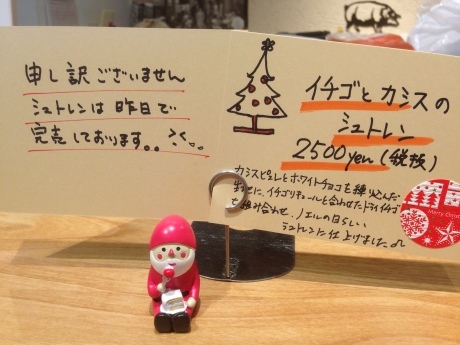 申し訳ございません
シュトレンは昨日で
完売しております。。
イチゴとカシスの
シュトレン
2500yen(税抜)
カシスピュレとホワイトチョコを練り込んだ
生地に、イチゴリキュールと合わせたドライイチゴ
を組み合わせ、ノエルの日らしい
シュトレンに仕上げました♫
Merry Christmas